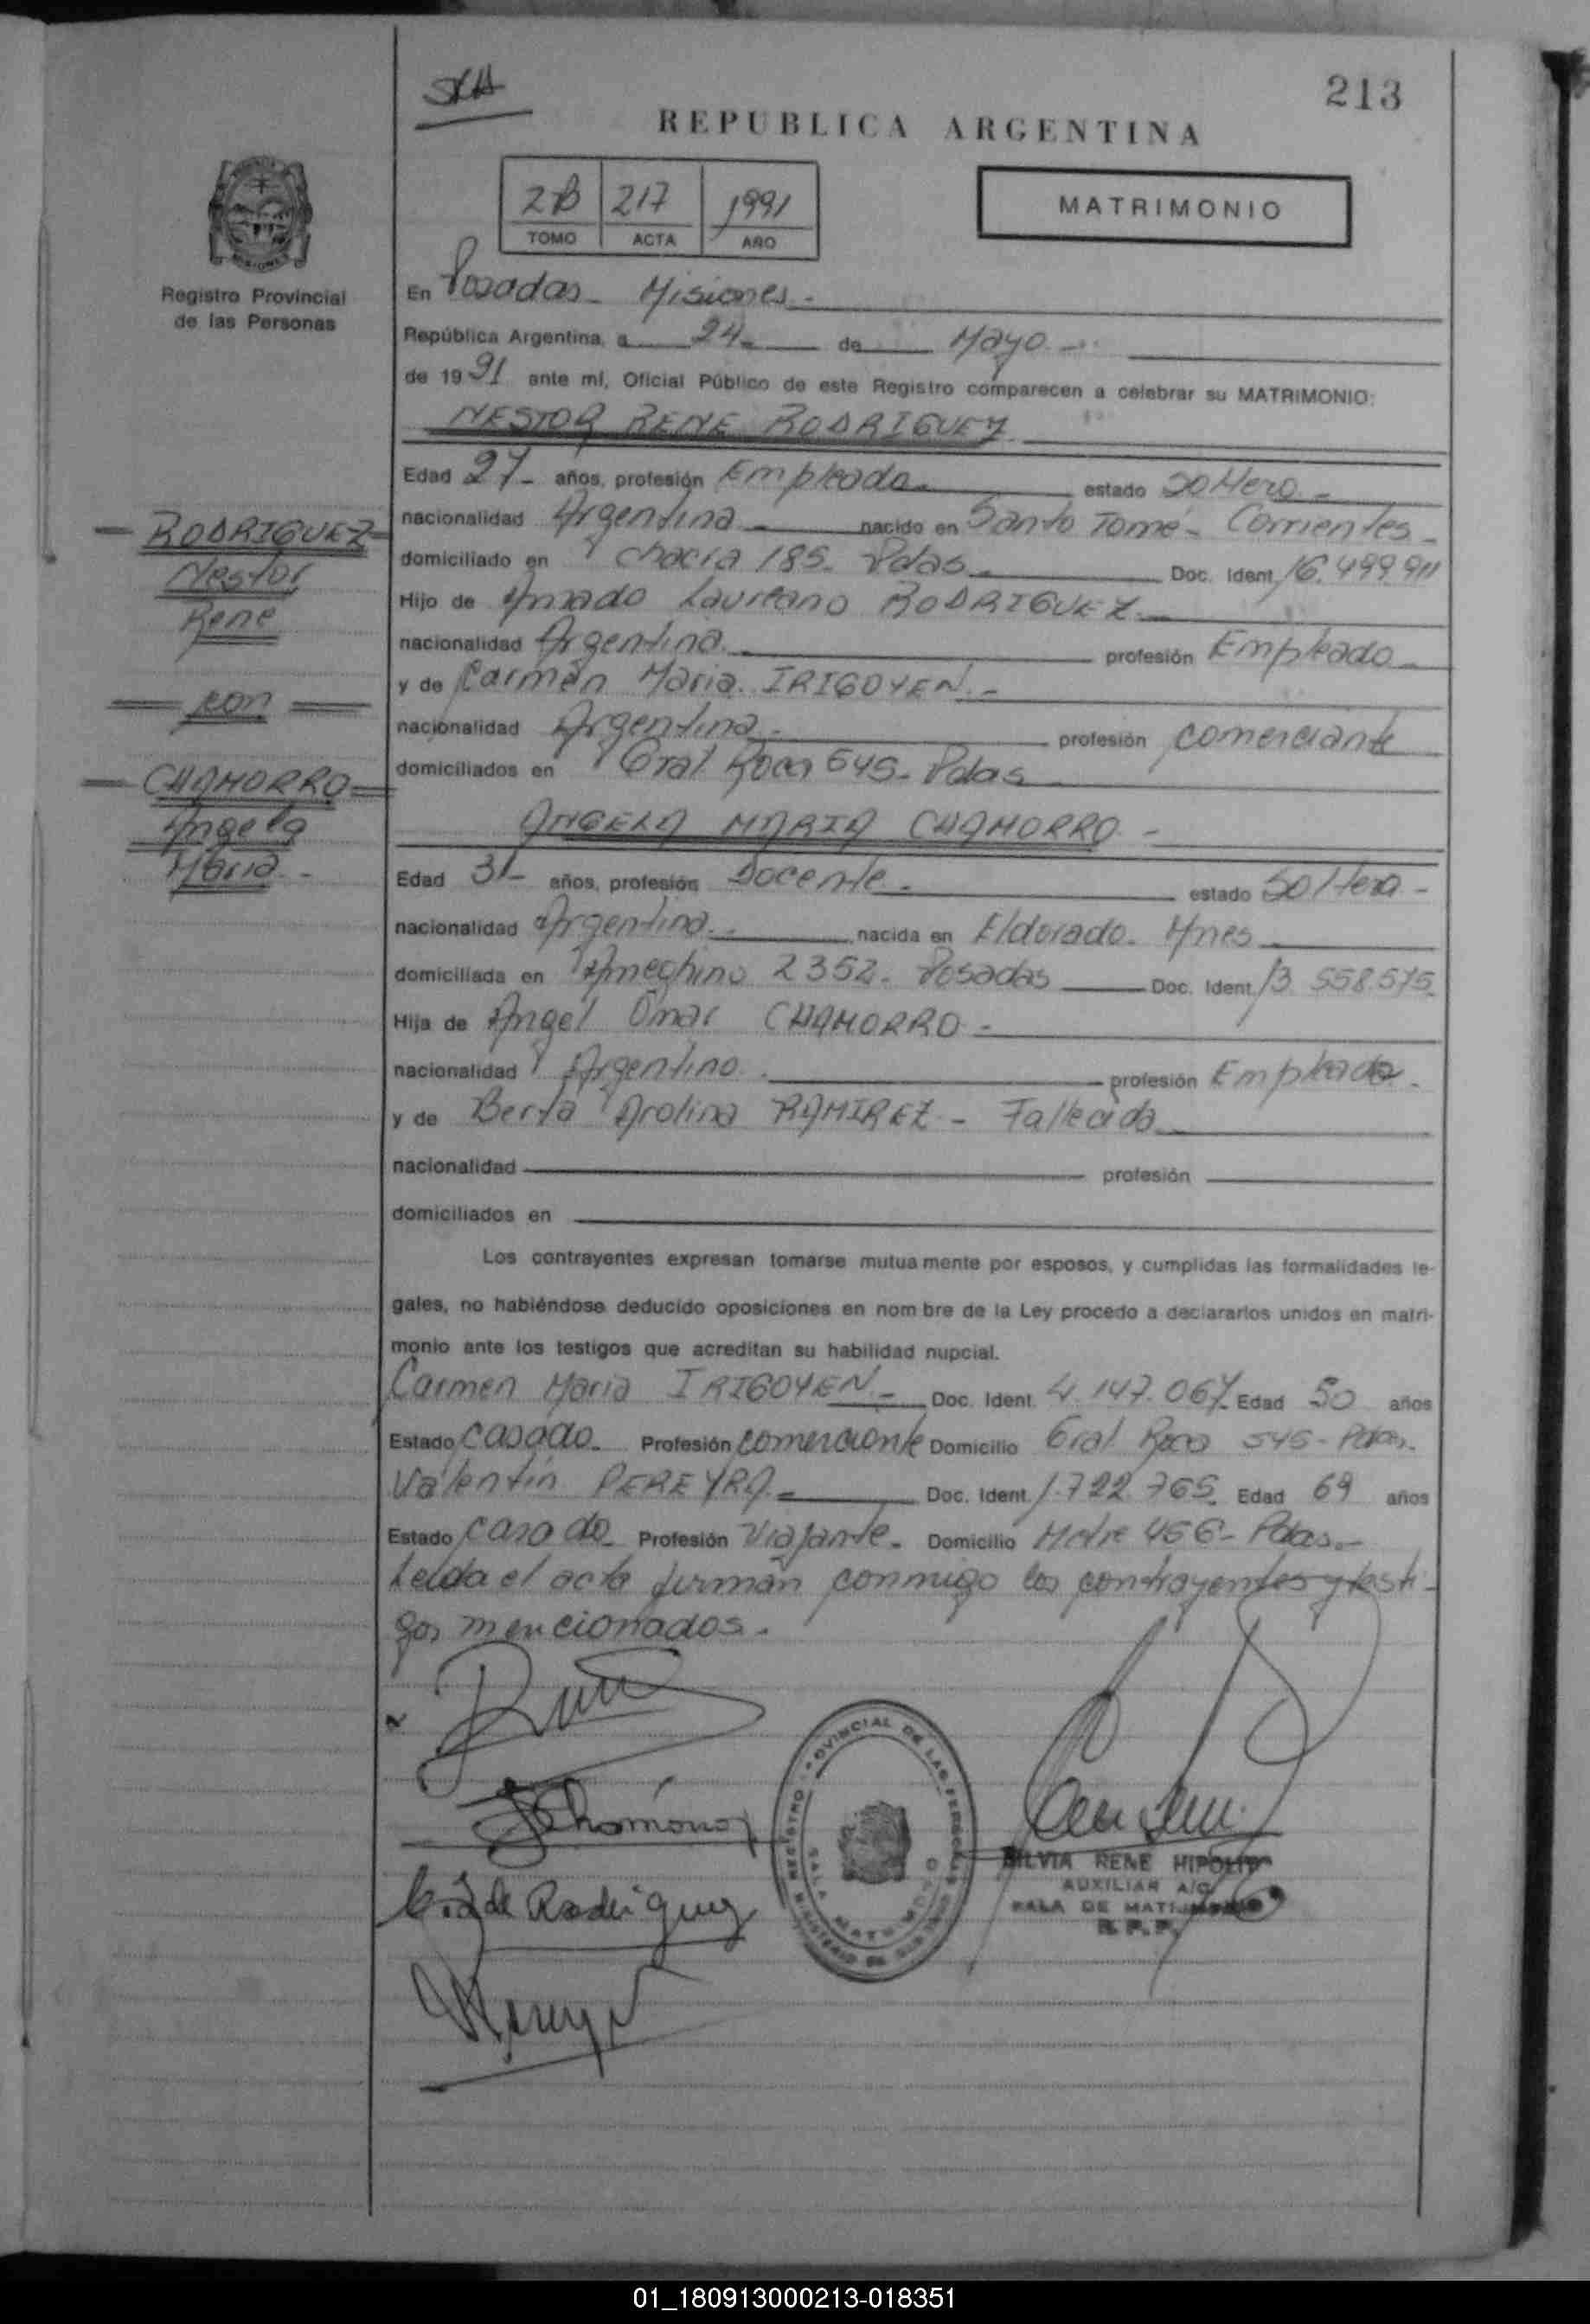 213
REPUBLICA ARGENTINA
2B 217 1991
TOMO ACTA AÑO
MATRIMONIO
Registro Provincial
de las Personas
En Posadas - Misiones -
República Argentina, a 24 - de Mayo -
de 1991 ante mí, Oficial Público de este Registro comparecen a celebrar su MATRIMONIO:
NESTOR RENE RODRIGUEZ
Edad 27 - años, profesión Empleado - estado soltero -
nacionalidad Argentina - nacido en Santo Tomé - Corrientes -
domiciliado en chacra 185 - Pdas - Doc. Ident. 16.499.911
Hijo de Amado Laureano RODRIGUEZ -
nacionalidad Argentina - profesión Empleado -
y de Carmen Maria IRIGOYEN -
nacionalidad Argentina - profesión comerciante
domiciliados en Gral Roca 545 - Pdas
ANGELA MARIA CHAMORRO -
Edad 31 - años, profesión Docente - estado Soltera -
nacionalidad Argentina - nacida en Eldorado - Mnes
domiciliada en Ameghino 2352 - Posadas Doc. Ident. 13.558.575
Hija de Angel Omar CHAMORRO -
nacionalidad Argentino - profesión Empleado -
y de Berta Arolina RAMIREZ - Fallecida
nacionalidad profesión
domiciliados en
Los contrayentes expresan tomarse mutuamente por esposos, y cumplidas las formalidades le-
gales, no habiéndose deducido oposiciones en nombre de la Ley procedo a declararlos unidos en matri-
monio ante los testigos que acreditan su habilidad nupcial.
Carmen Maria IRIGOYEN - Doc. Ident. 4.147.067 Edad 50 años
Estado casada - Profesión comerciante Domicilio Gral Roca 545 - Pdas.
Valentín PEREYRA - Doc. Ident. 1.722.765 Edad 69 años
Estado casado - Profesión Viajante - Domicilio Mitre 456 - Pdas. -
Leida el acta firman conmigo los contrayentes y testi-
gos mencionados -
RODRIGUEZ
Nestor
Rene
con
CHAMORRO
Angela
Maria -
de Rodriguez
SILVIA RENE HIPOLITO
AUXILIAR A/C
SALA DE MATRIMONIO
R.P.P.
01_180913000213-018351